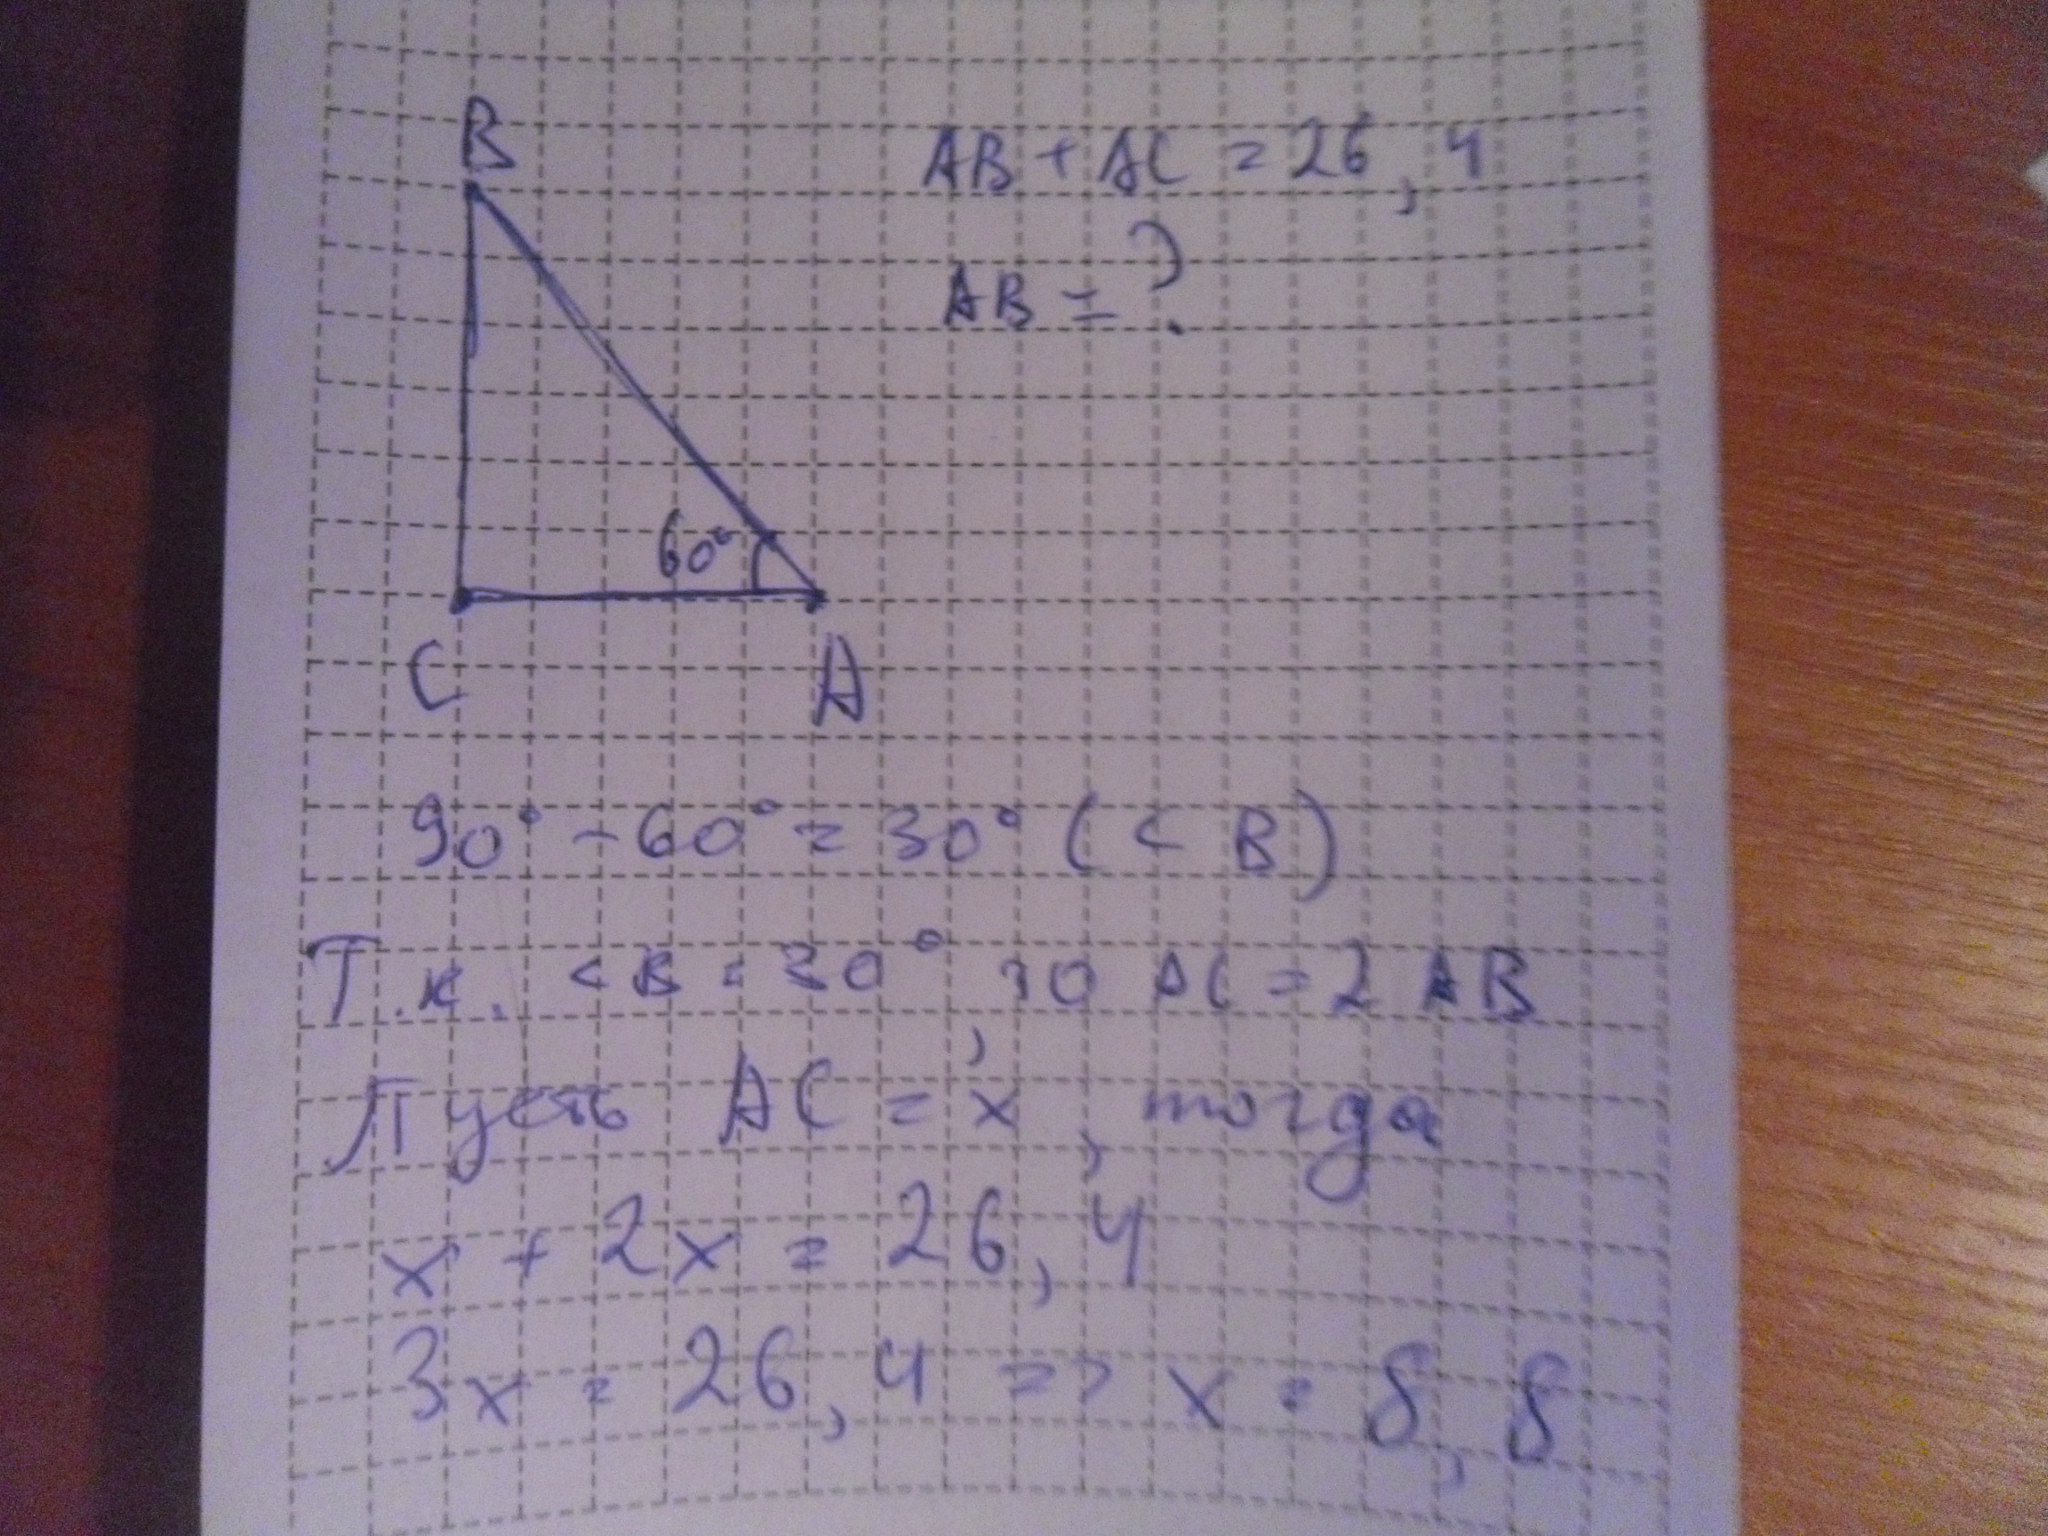 B
AB + AC = 26,4
AB = ?
60°
C
A
90° - 60° = 30° (< B)
Т.к. < B = 30°, то AC = 2 AB
Пусть AC = x, тогда
x + 2x = 26,4
3x = 26,4 => x = 8,8